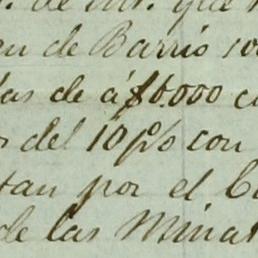 de Mr. que
en de Barrio 100
das de á $6.000 c
s del 10 p% con
tan por el C
de las Minas